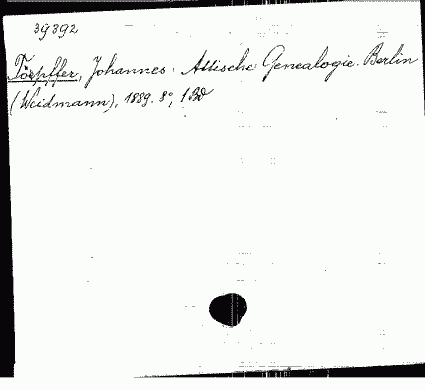 39392
Töpffer, Johannes. Attische Genealogie. Berlin
(Weidmann), 1889. 8°, 1 Bd